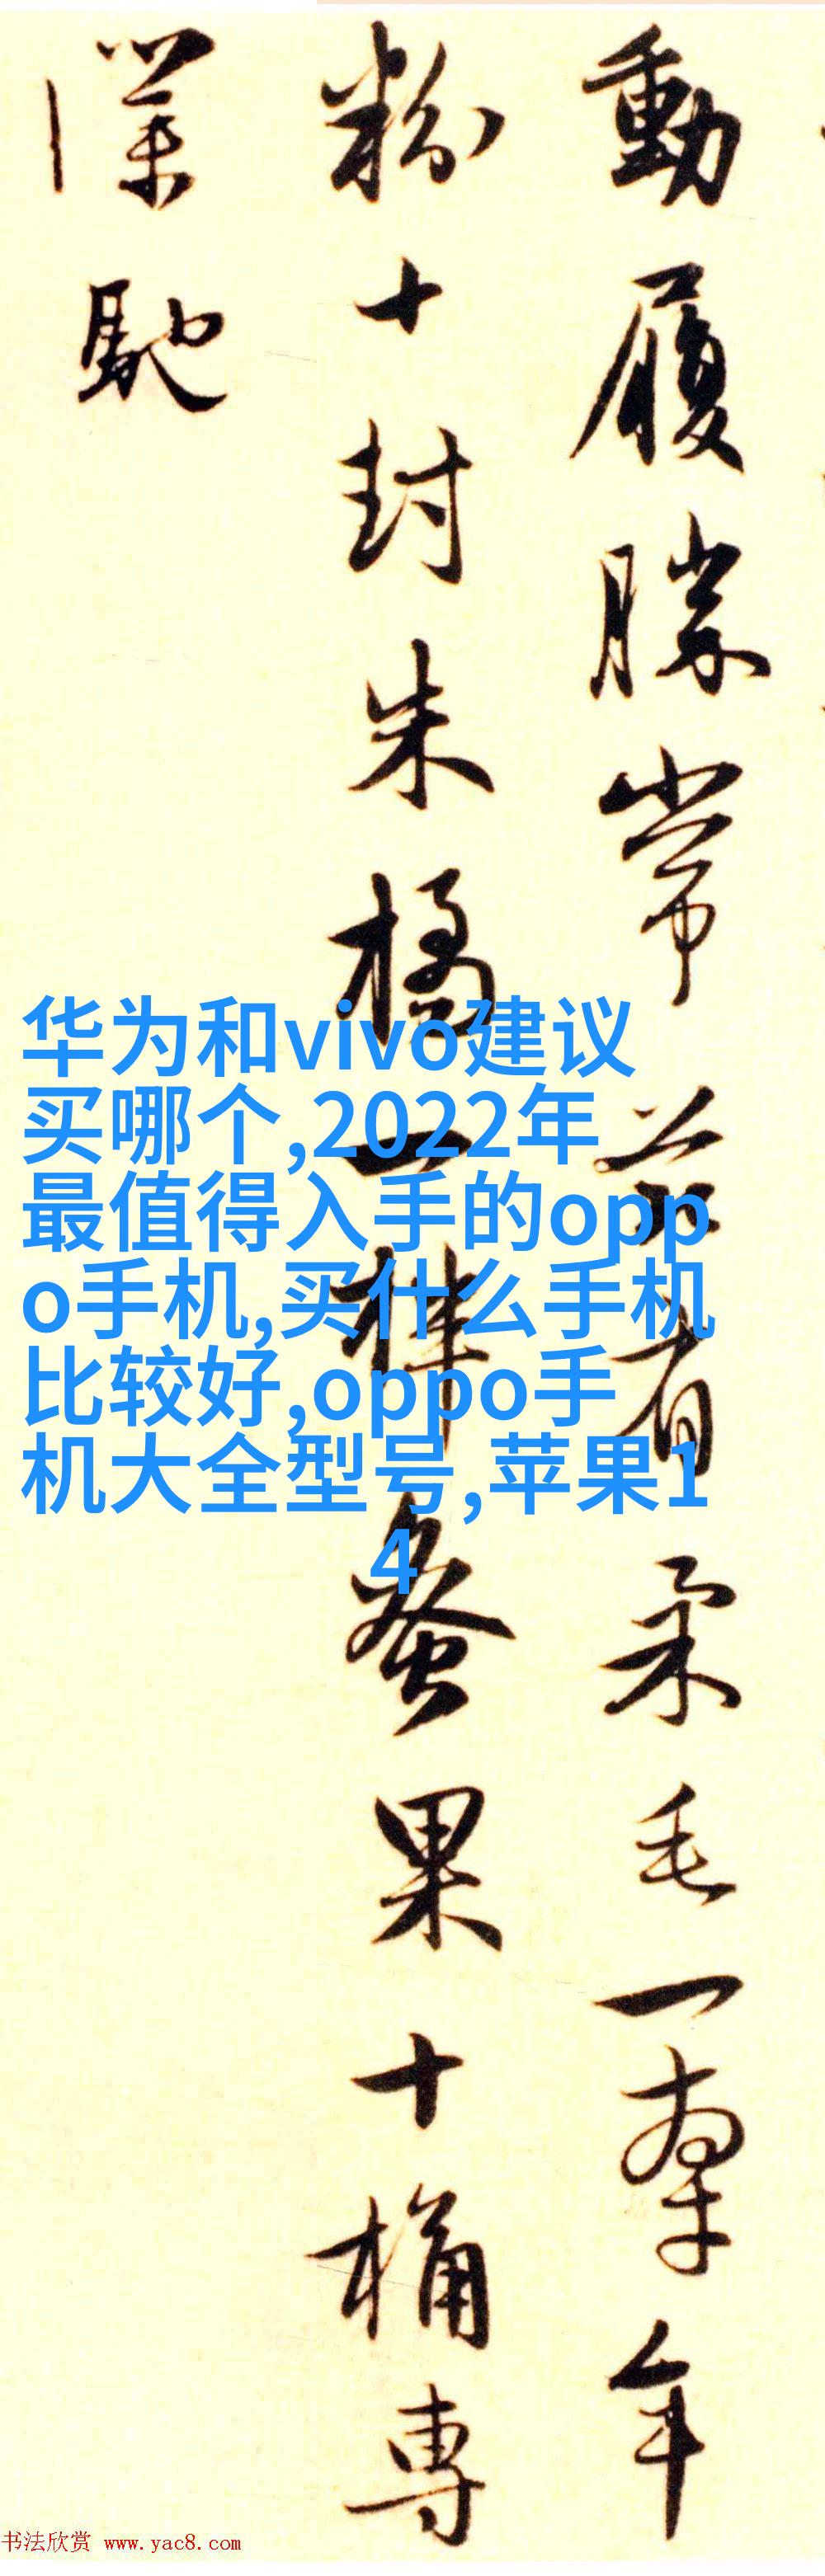 動履勝常兹有柔毛一牽年
粉十封朱橘一 蚤果十桶専
僕馳
华为和vivo建议
买哪个,2022年
最值得入手的opp
o手机,买什么手机
比较好,oppo手
机大全型号,苹果1
4
书法欣赏 www.yac8.com